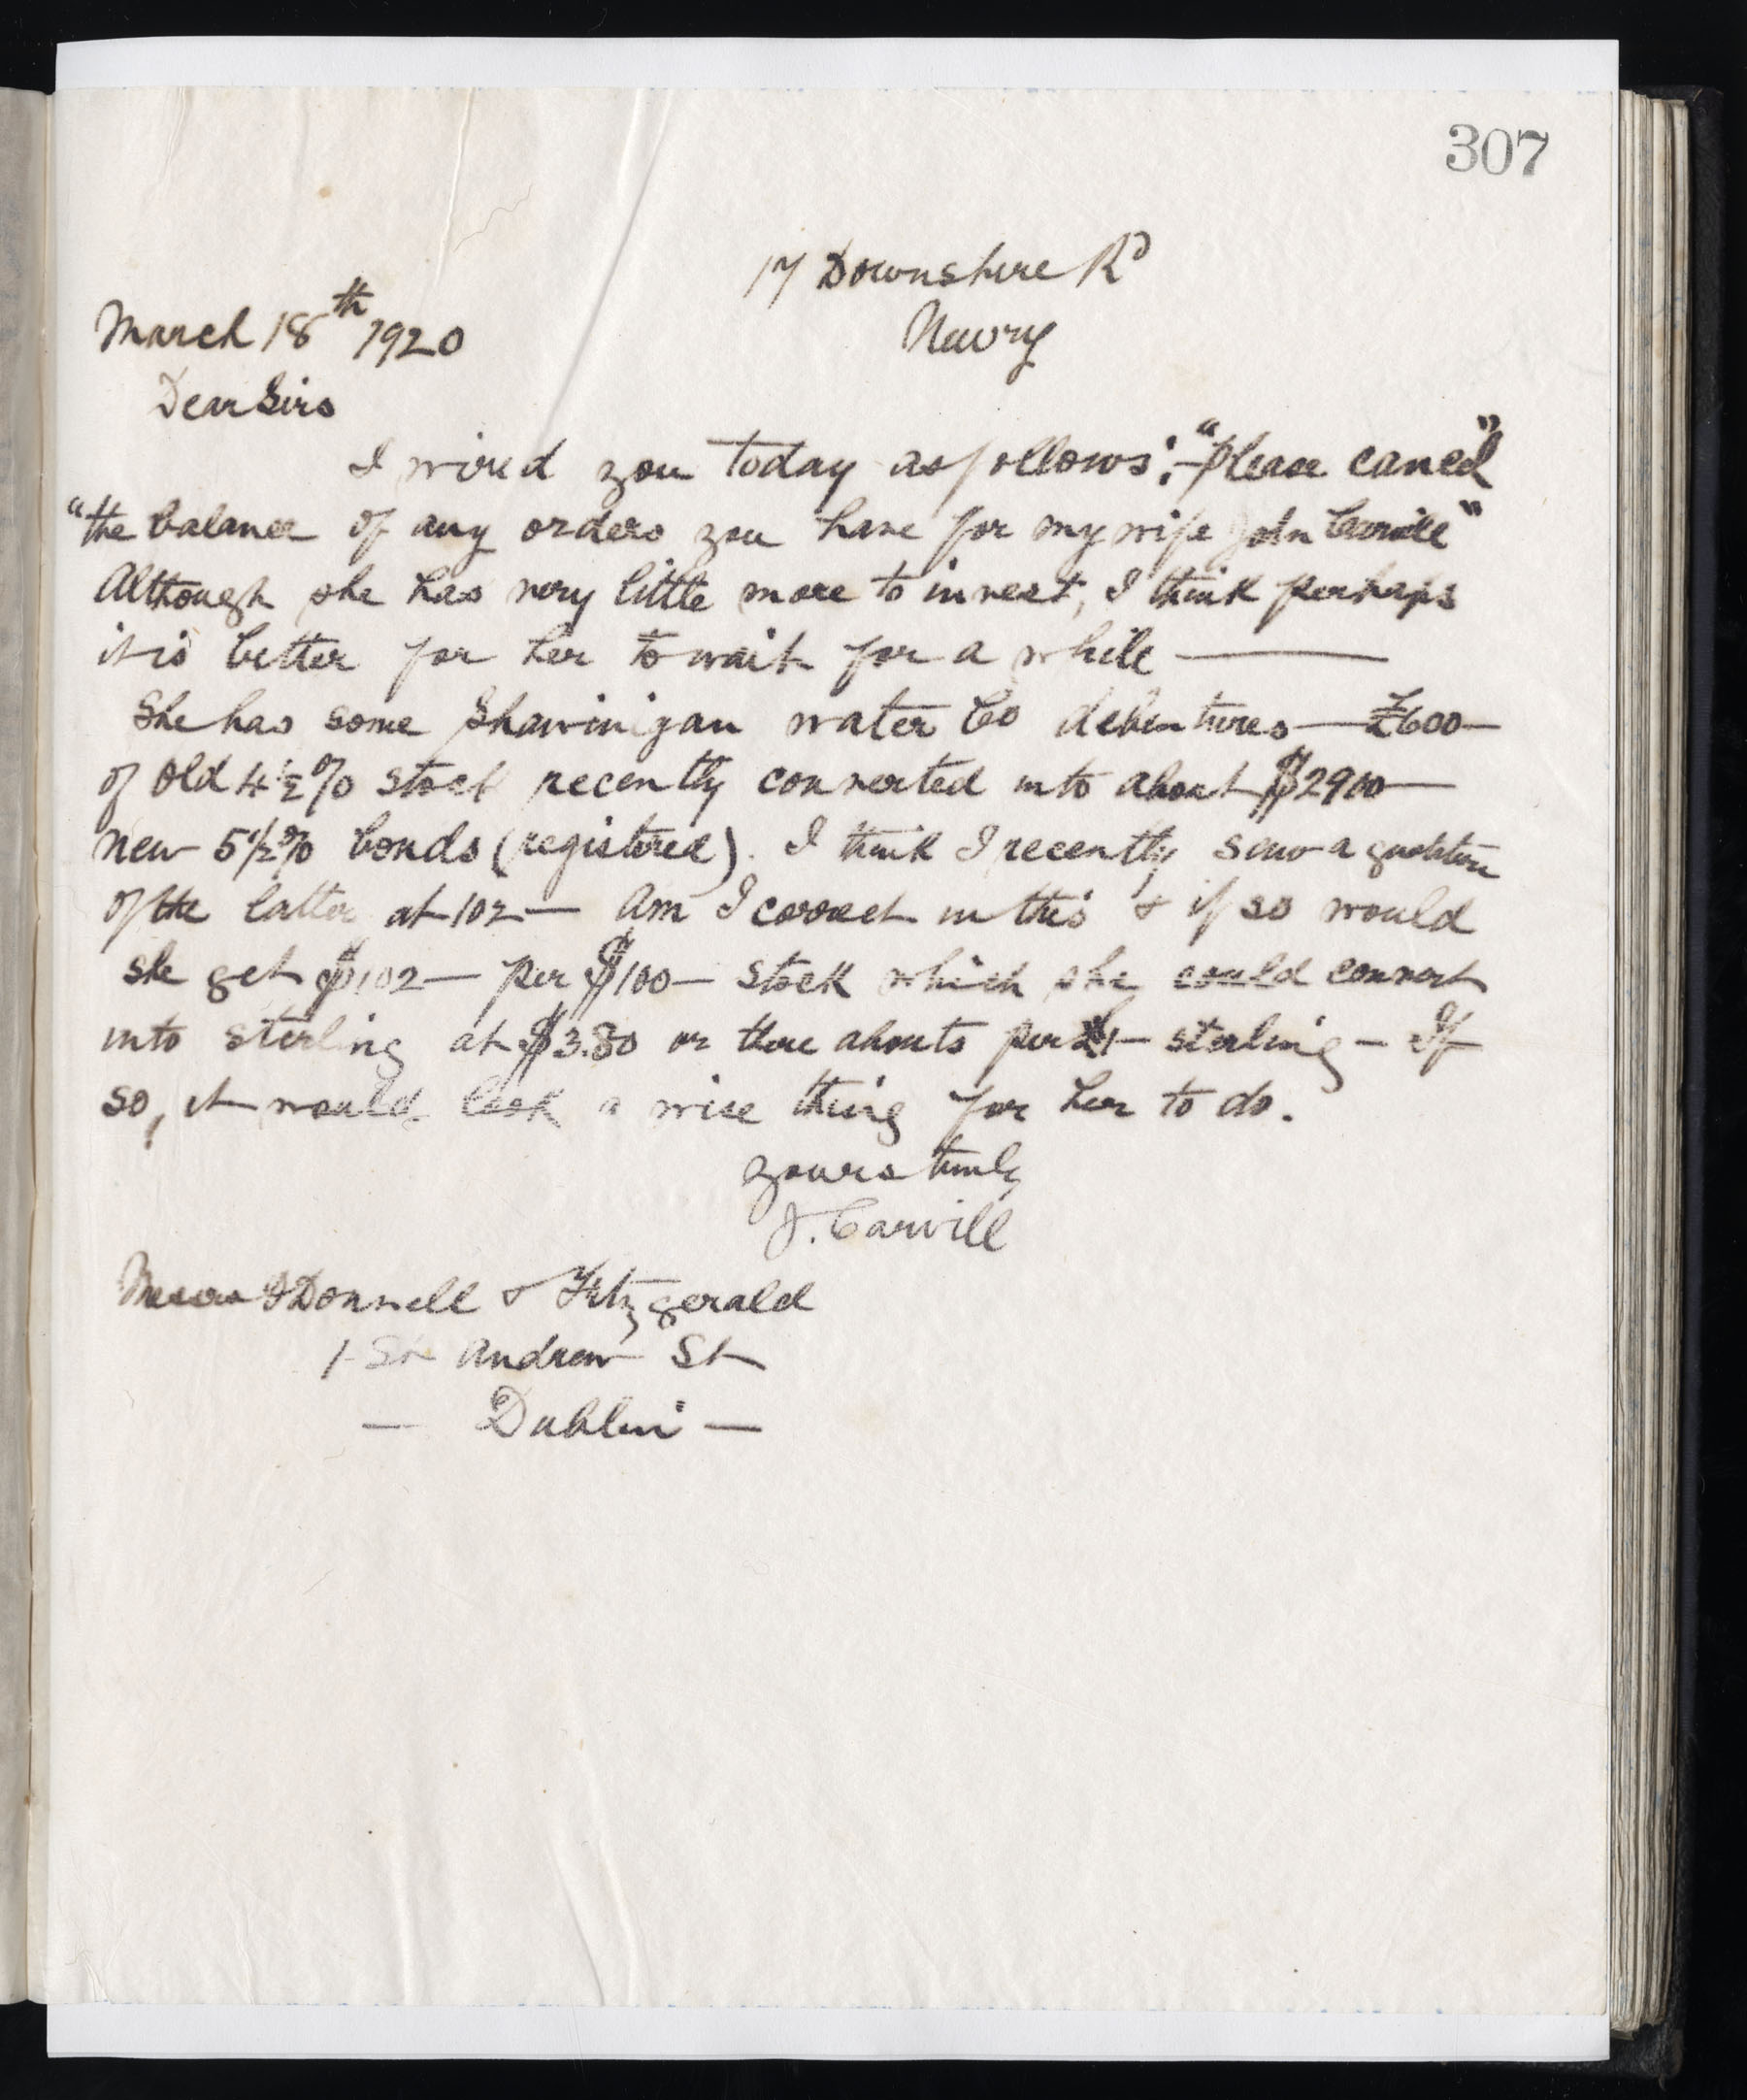 307
17 Downshire Rd
Newry
March 18th 1920
Dear Sirs
I wired you today as follows:- "Please cancel"
"the balance of any orders you have for my wife John Carvill"
Although she has very little more to invest, I think perhaps
it is better for her to wait for a while —
She has some Shawinigan water Co debentures — £600 —
of old 4½% stock recently converted into about $2900 —
new 5½% bonds (registered). I think I recently saw a quotation
of the latter at 102 — Am I correct in this & if so would
she get $102 — per $100 — stock which she could convert
into sterling at $3.80 or there abouts per £1 — sterling — If
so, it would look a wise thing for her to do.
Yours truly
J. Carvill
Messrs O'Donnell & Fitzgerald
1 St Andrew St
— Dublin —